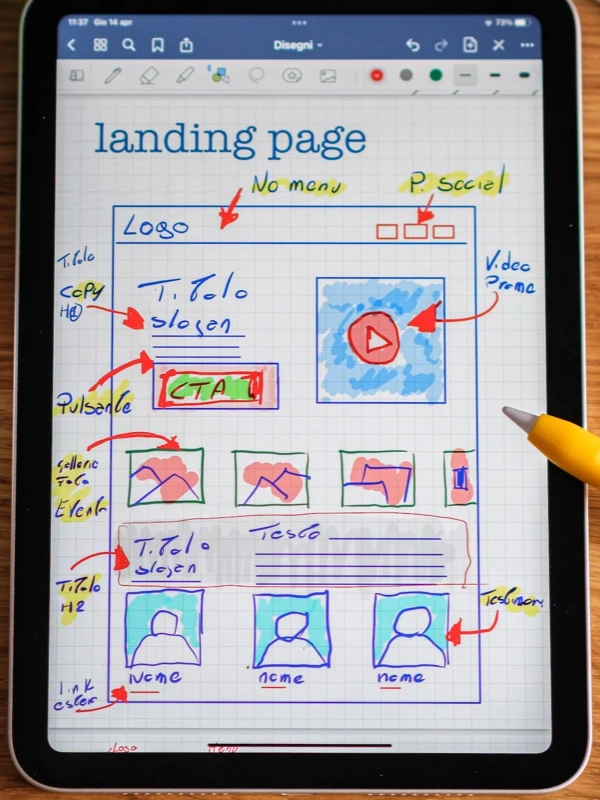 11:37 Gio 14 apr
73%
Disegni
landing page
No menu
P. Social
Logo
Titolo
Copy
H1
Titolo
slogan
Video
Promo
CTA
Pulsante
galleria
Foto
Evento
Titolo
slogan
Testo
Titolo
H2
Name
name
name
Link
ester
Logo
Menu